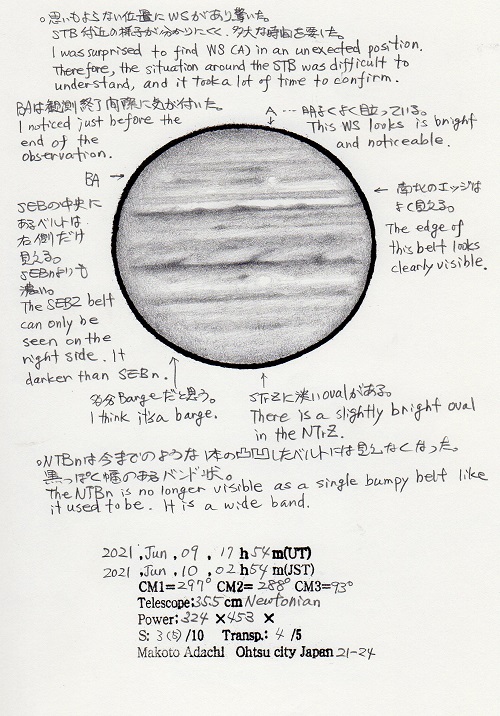 ○思いもよらない位置にWSがあり驚いた。
STB付近の様子が分かりにくく、多大な時間を要した。
I was surprised to find WS(A) in an unexected position.
Therefore, the situation around the STB was difficult to
understand, and it toook a lot of time to confirm.
BAは観測終了間際に気が付いた。
I noticed just before the
end of the
observation.
A … 明るくよく目立っている。
This WS looks is bright
and noticeable.
BA →
SEBの中央に
あるベルトは
右側だけ
見える。
SEBnよりも
濃い。
The SEBZ belt
can only be
seen on the
right side. It
darker than SEBn.
← 南北のエッジは
よく見える。
The edge of
this belt looks
clearly visible.
多分Bargeだと思う。
I think it's a barge.
STrZに淡いovalがある。
There is a slightly bright oval
in the NTrZ.
○NTBnは今までのような1本の凸凹したベルトには見えなくなった。
黒っぽく幅のあるバンド状。
The NTBn is no longer visible as a single bumpy belt like
it used to be. It is a wide band.
2021 ,Jun .09 . 17 h 54 m(UT)
2021 ,Jun . 10 . 02 h 54 m(JST)
CM1=297° CM2= 288° CM3=93°
Telescope:35.5 cm Newtonian
Power:324 ×453 ×
S: 3(5) /10 Transp.: 4 /5
Makoto Adachi Ohtsu city Japan 21-24